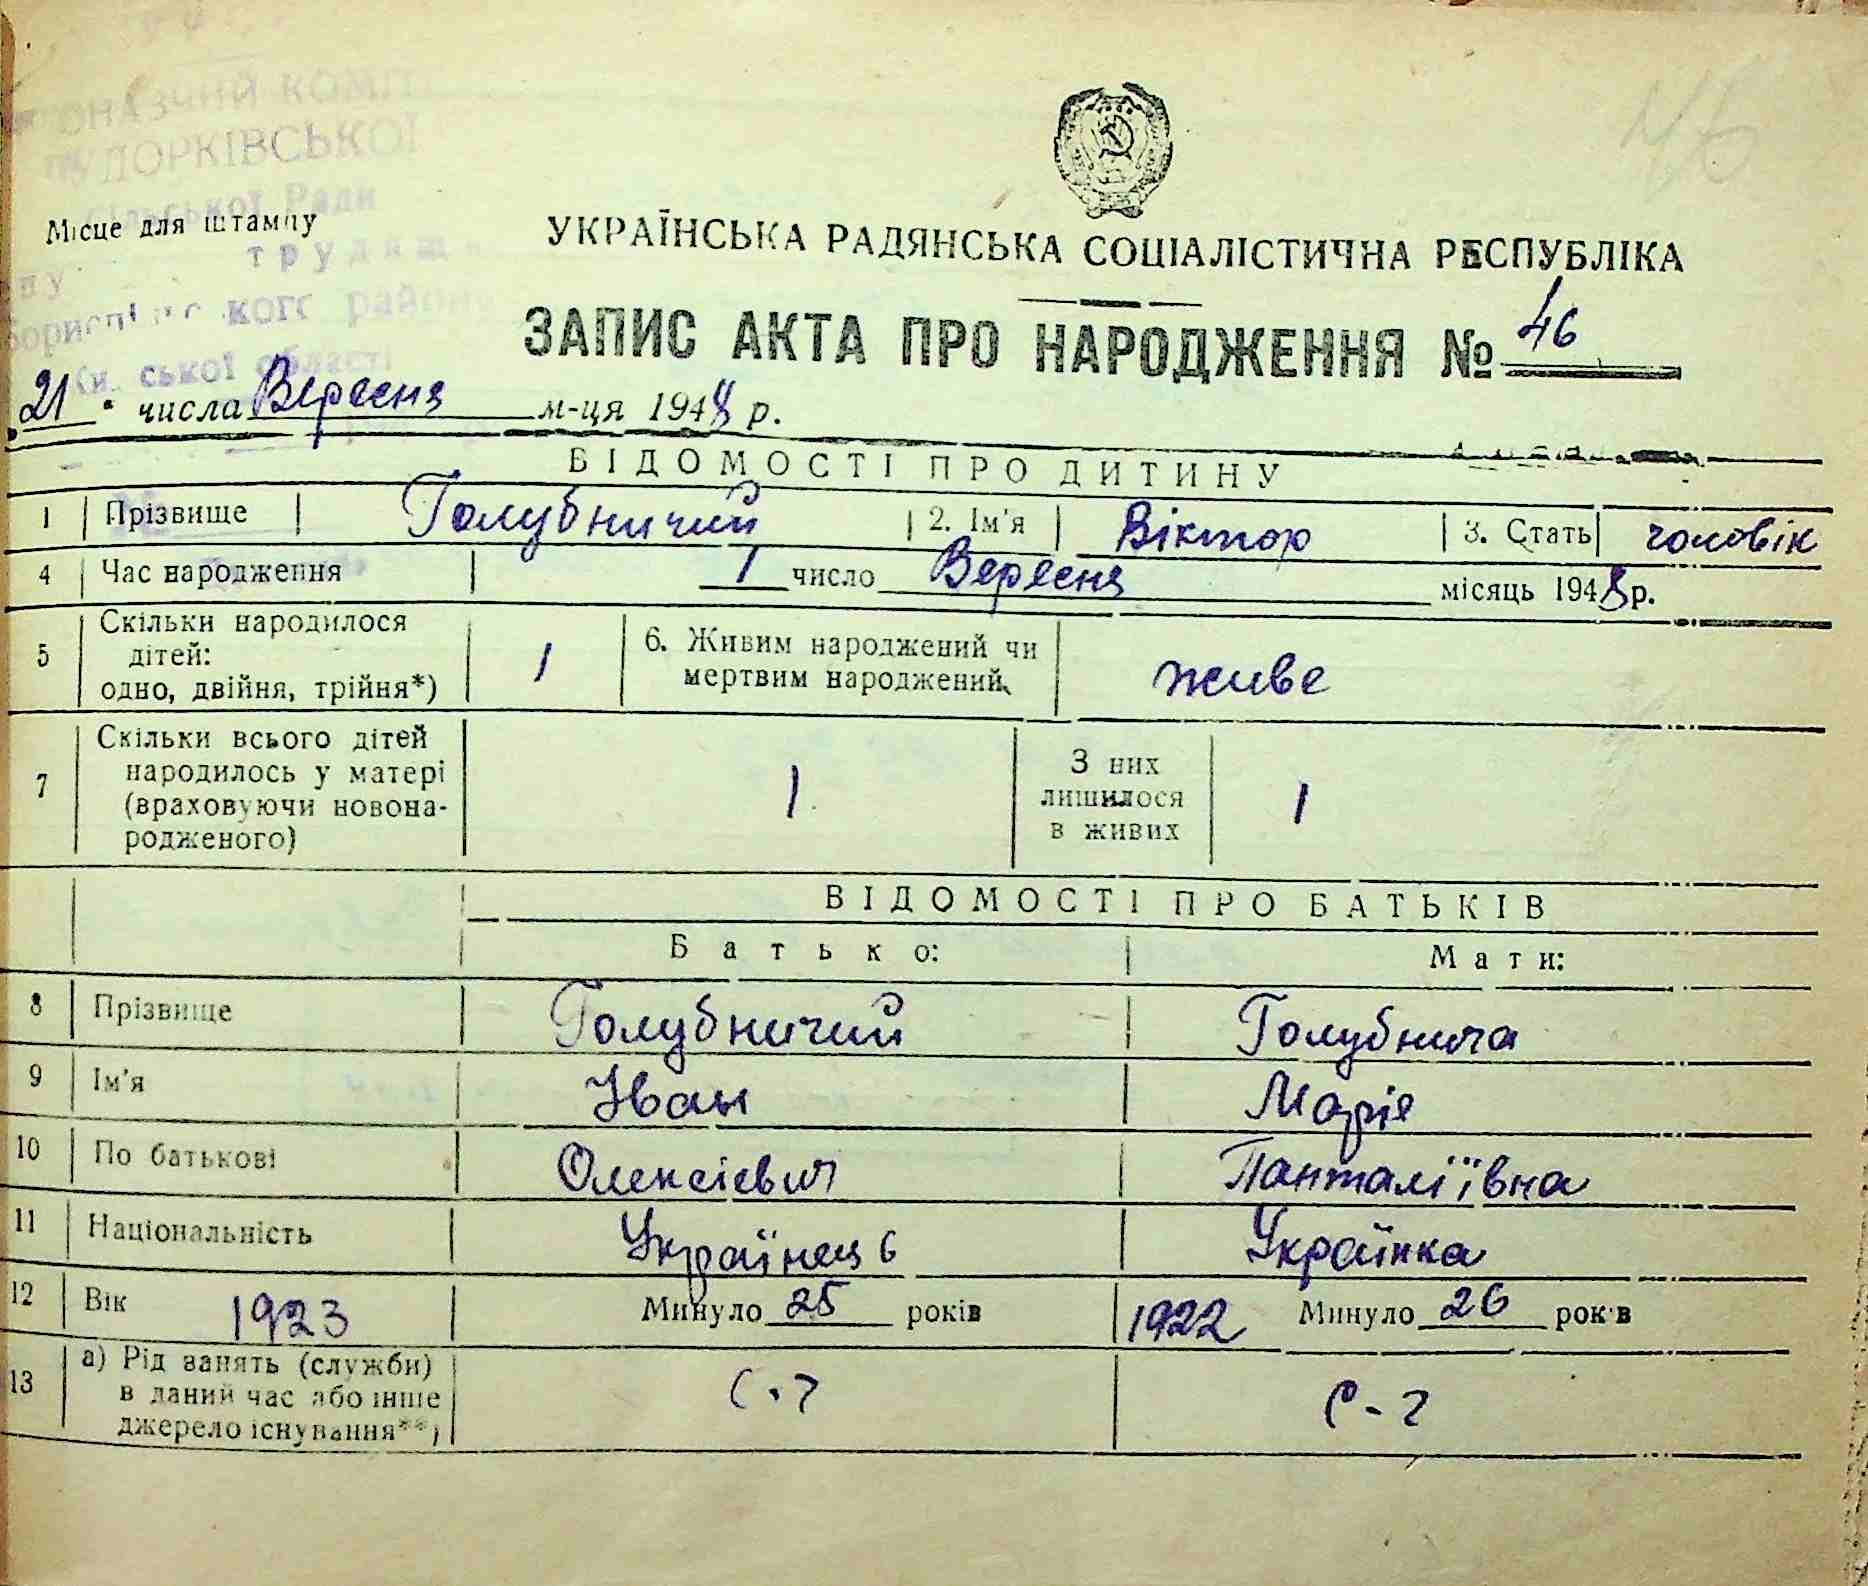 КОМ
ДОРКІВСЬКОЇ
сільської Ради
Місце для штампу
трудящ
УКРАЇНСЬКА РАДЯНСЬКА СОЦІАЛІСТИЧНА РЕСПУБЛІКА
ького району
ської області
ЗАПИС АКТА ПРО НАРОДЖЕННЯ № 46
21 числа Вересня м-ця 1948 р.
ВІДОМОСТІ ПРО ДИТИНУ
1 Прізвище Голубничий 2. Ім'я Віктор 3. Стать чоловік
4 Час народження 1 число Вересня місяць 1948 р.
5 Скільки народилося дітей: одно, двійня, трійня*) 1 6. Живим народжений чи мертвим народжений живе
7 Скільки всього дітей народилось у матері (враховуючи новонародженого) 1 З них лишилося в живих 1
ВІДОМОСТІ ПРО БАТЬКІВ
Батько: Мати:
8 Прізвище Голубничий Голубнича
9 Ім'я Іван Марія
10 По батькові Олексієвич Панталіївна
11 Національність Українець Українка
12 Вік 1923 Минуло 25 років 1922 Минуло 26 років
13 а) Рід занять (служби) в даний час або інше джерело існування**)